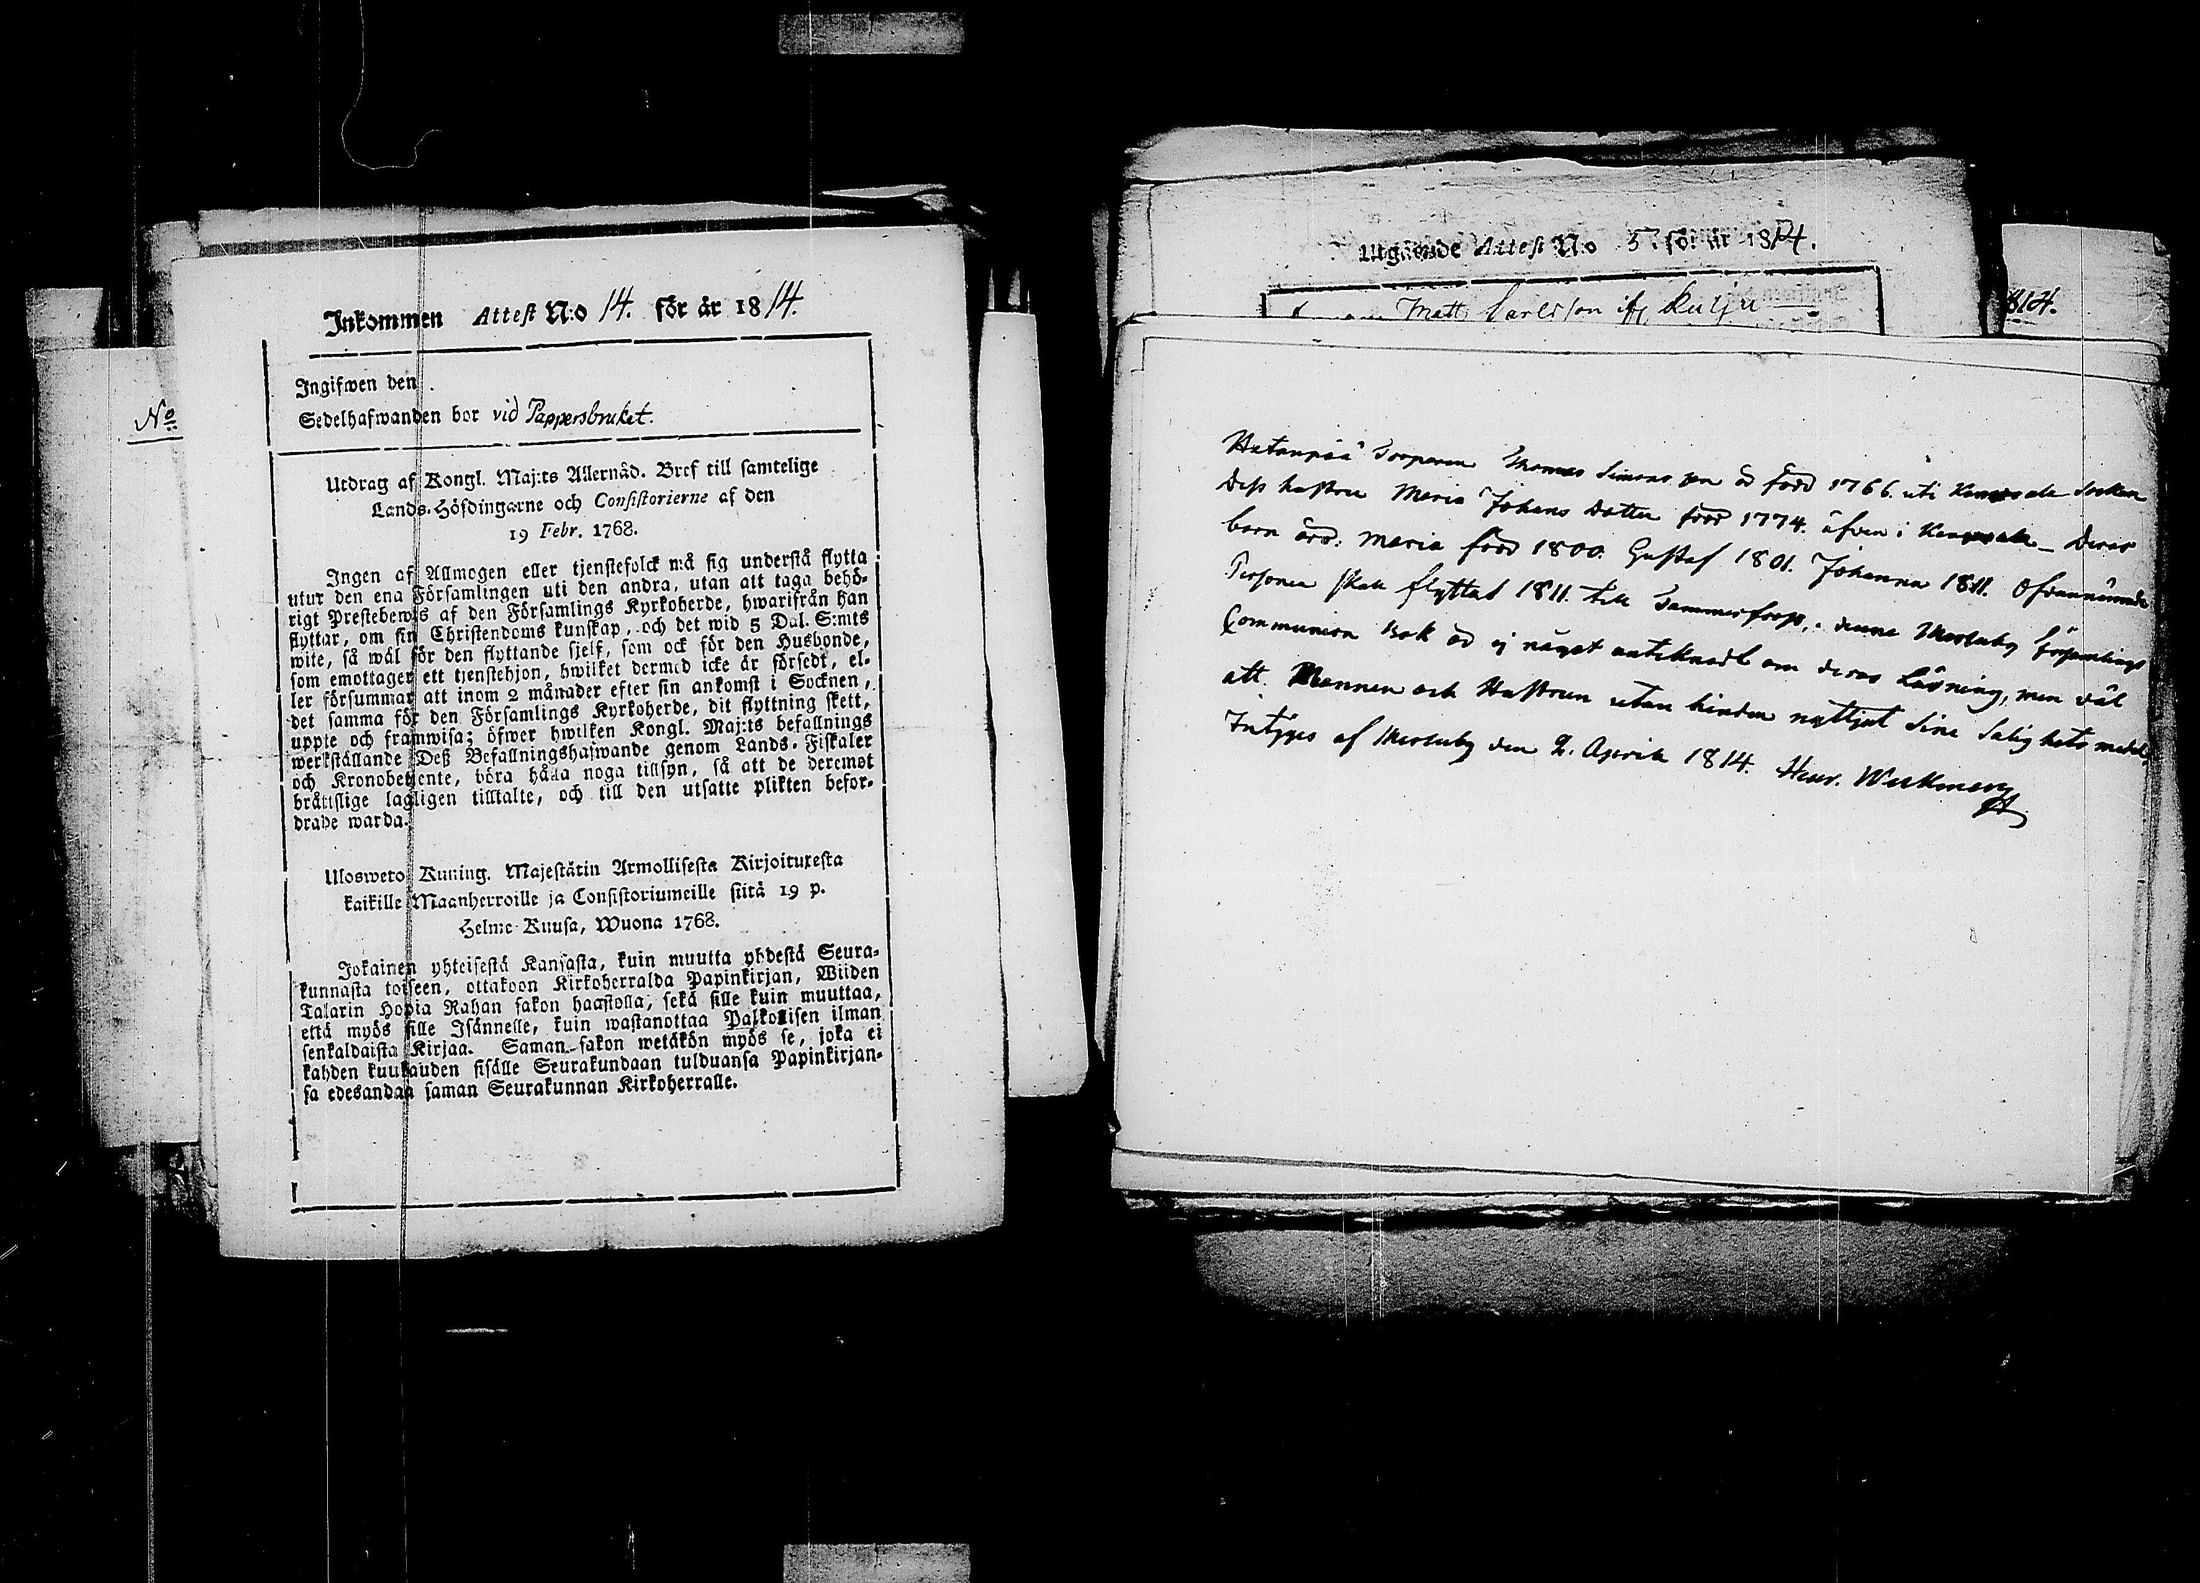 Inkommen Attest N:o 14. för år 1814.
Ingifwen den
Sedelhafwanden bor vid Pappersbruket.
No
Utdrag af Kongl. Maj:ts Allernåd. Bref till samtelige
Lands-Höfdingarne och Consistorierne af den
19 Febr. 1768.
Ingen af Allmogen eller tjenstefolck må sig understå flytta
utur den ena Församlingen uti den andra, utan att taga behö-
rigt Prestebewis af den Församlings Kyrkoherde, hwarifrån han
flyttar, om sin Christendoms kunskap, och det wid 5 Dal. S:mts
wite, så wäl för den flyttande sjelf, som ock för den Husbonde,
som emottager ett tjenstehjon, hwilket dermed icke är försedt, el-
ler försummar att inom 2 månader efter sin ankomst i Socknen,
det samma för den Församlings Kyrkoherde, dit flyttning skett,
uppte och framwisa; öfwer hwilken Kongl. Maj:ts befallnings
werkställande Deß Befallningshafwande genom Lands-Fiskaler
och Kronobetjente, böra hålla noga tillsyn, så att de deremot
bråttslige lagligen tilltalte, och till den utsatte plikten befor-
drade warda.
Ulosweto Kuning. Majestätin Armollisesta Kirjoituxesta
kaikille Maanherroille ja Consistoriumeille siitä 19 p.
Helme-Kuusa, Wuona 1768.
Jokainen yhteisestä Kansasta, kuin muutta yhdestä Seura-
kunnasta toiseen, ottakoon Kirkoherralda Papinkirjan, Wiiden
Talarin Hopia Rahan sakon haastolla, sekä sille kuin muuttaa,
että myös sille Isännelle, kuin wastanottaa Palkolisen ilman
senkaldaista Kirjaa. Saman sakon wetäkön myös se, joka ei
kahden kuukauden sisälle Seurakundaan tulduansa Papinkirjan-
sa edesandaa saman Seurakunnan Kirkoherralle.
Utgående Attest N:o 5 för år 1814.
Matts Carlsson ifr Kulju
814.
Hatanpää Torparen Thomas Simonsson är född 1766. uti Kangasala Socken
Dess hustru Maria Johans Dotter född 1774. äfven i Kangasala – Deras
barn äro: Maria född 1800. Gustaf 1801. Johanna 1811. Ofvannämnde
Personer skola flyttat 1811. till Tammerfors, i denna Messuby Församlings
Communion Bok är ej något antecknadt om deras Läsning, men väl
att Mannen och Hustrun utan hinder nyttjat Sine Salighets medel,
Intyges af Messuby den 2. Aprill 1814. Henr. Weckman